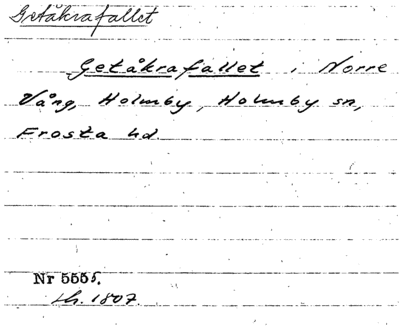 Getåkrafallet
Getåkrafallet i Norre
Vång, Holmby, Holmby sn,
Frosta hd.
Nr 5555.
Lh. 1807.